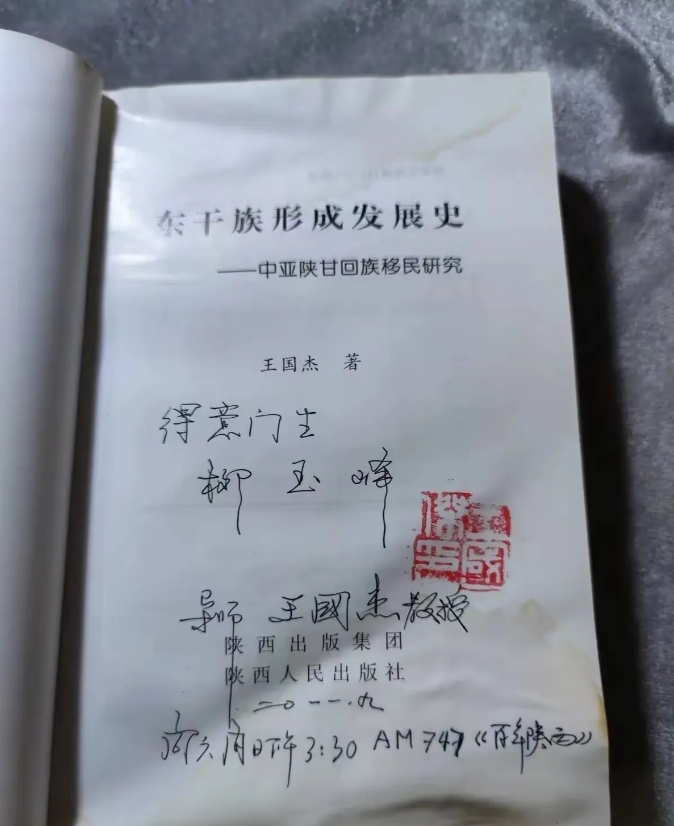 东干族形成发展史
——中亚陕甘回族移民研究
王国杰 著
得意门生
柳玉峰
王國
傑
导师 王國杰教授
陕西出版集团
陕西人民出版社
二〇一一.九
周日下午3:30 AM747《百年陕西》